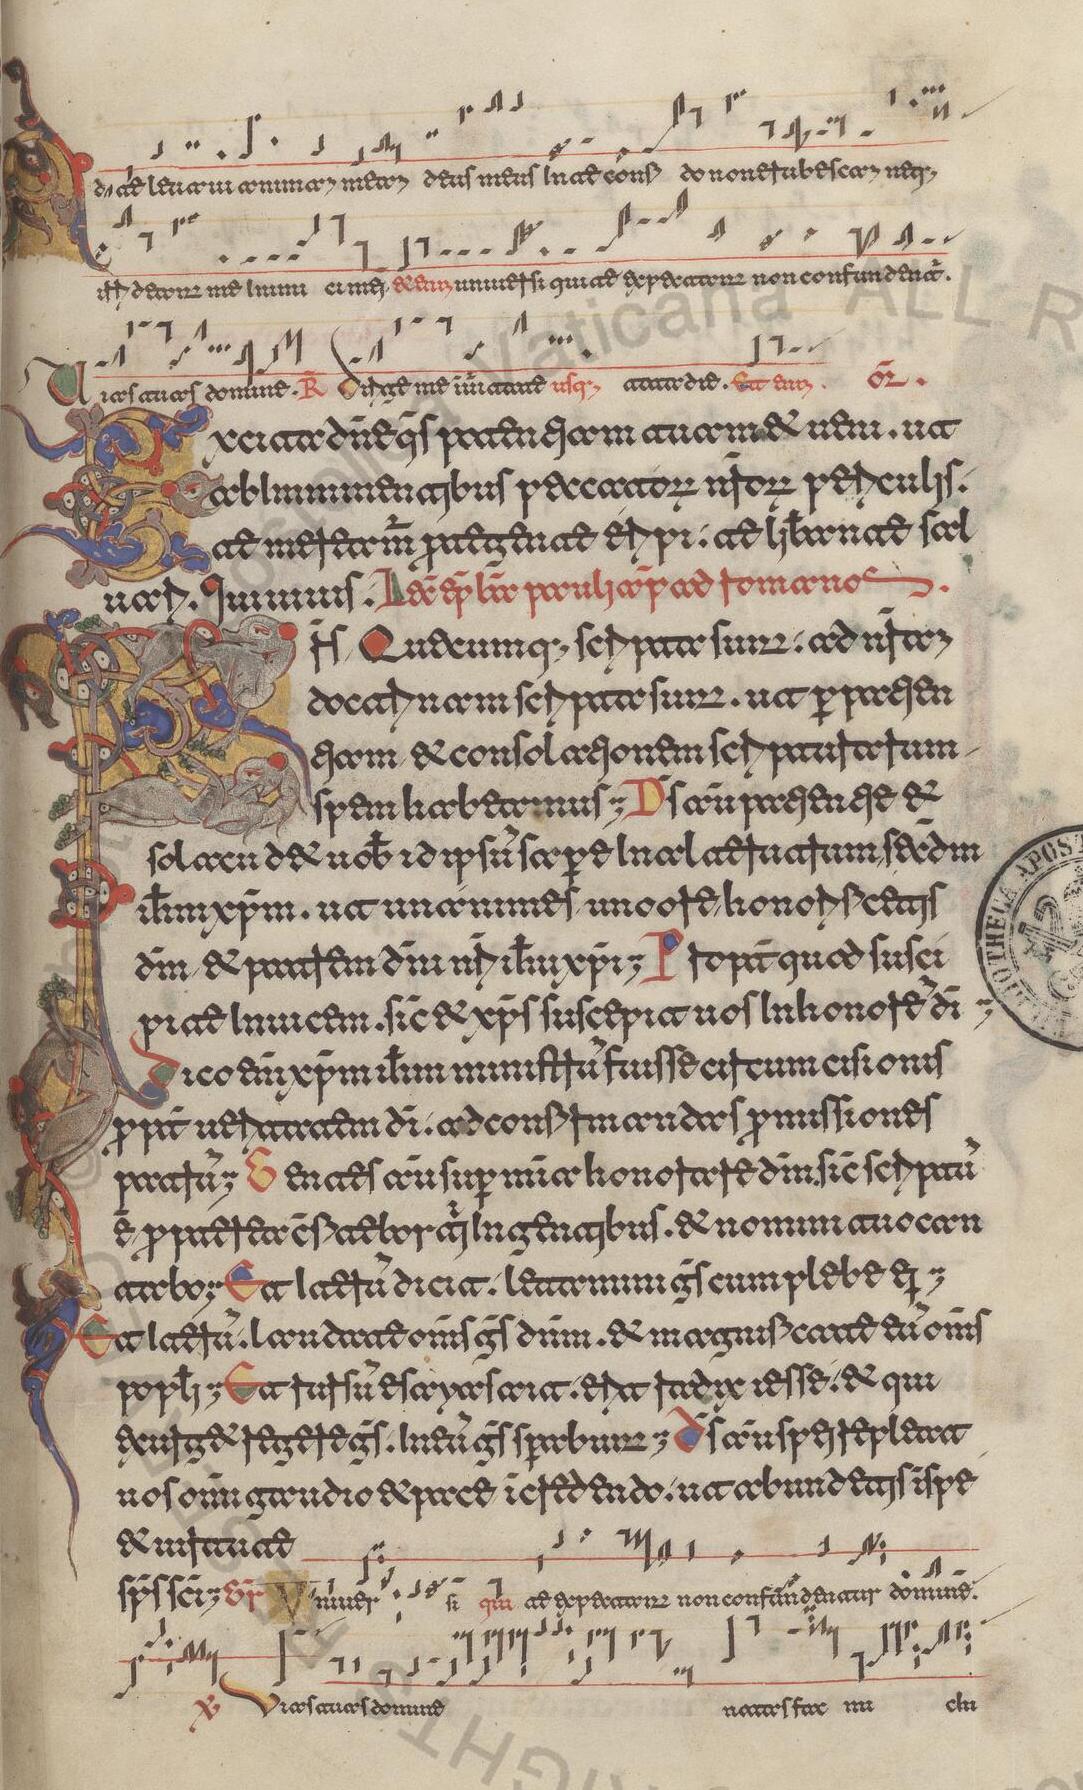 d te levavi animam meam deus meus in te confido non erubescam neq;
irrideant me inimici mei & eni universi qui te expectant non confundentur.
Vias tuas domine. R Dirige me in veritate usq; tuta die. Et eni. Or.
Excita dñe qs potentiam tuam & veni. ut
ab imminentibus peccatorum nrorum periculis.
te mereamur protegente eripi. te liberante sal
vari. Qui vivis. Lec epłe beati pauli apłi ad romanos.
Frs Quecumq; scripta sunt. ad nram
doctrinam scripta sunt. ut per patien
tiam & consolationem scripturarum
spem habeamus; Ds autem patientie &
solacii det vobis id ipsum sapere in alterutrum secdm
ihm xpm. ut unanimes uno ore honorificetis
dm & patrem dni nri ihu xpi; Propt quod susci
pite invicem. sic & xps suscepit vos in honore di;
Dico eni xpm ihm ministrum fuisse circumcisionis
propt veritatem di. ad confirmandas promissiones
patrum; Gentes autem super mia honorare dm. sic scriptum
e. propterea confitebor tibi in gentibus. & nomini tuo can
tabo; Et iterum dicit. letamini gs cum plebe ei;
Et iterum. laudate oms gs dnm. & magnificate eum oms
popłi; Et rursum esayas ait. erit radix iesse. & qui
exurget regere gs. in eum gs sperabunt; Ds autem spei repleat
vos omi gaudio & pace i credendo. ut abundetis i spe
& virtute
sps sci; GR Univer si qui te expectant non confundentur domine.
V Vias tuas domine notas fac mi chi